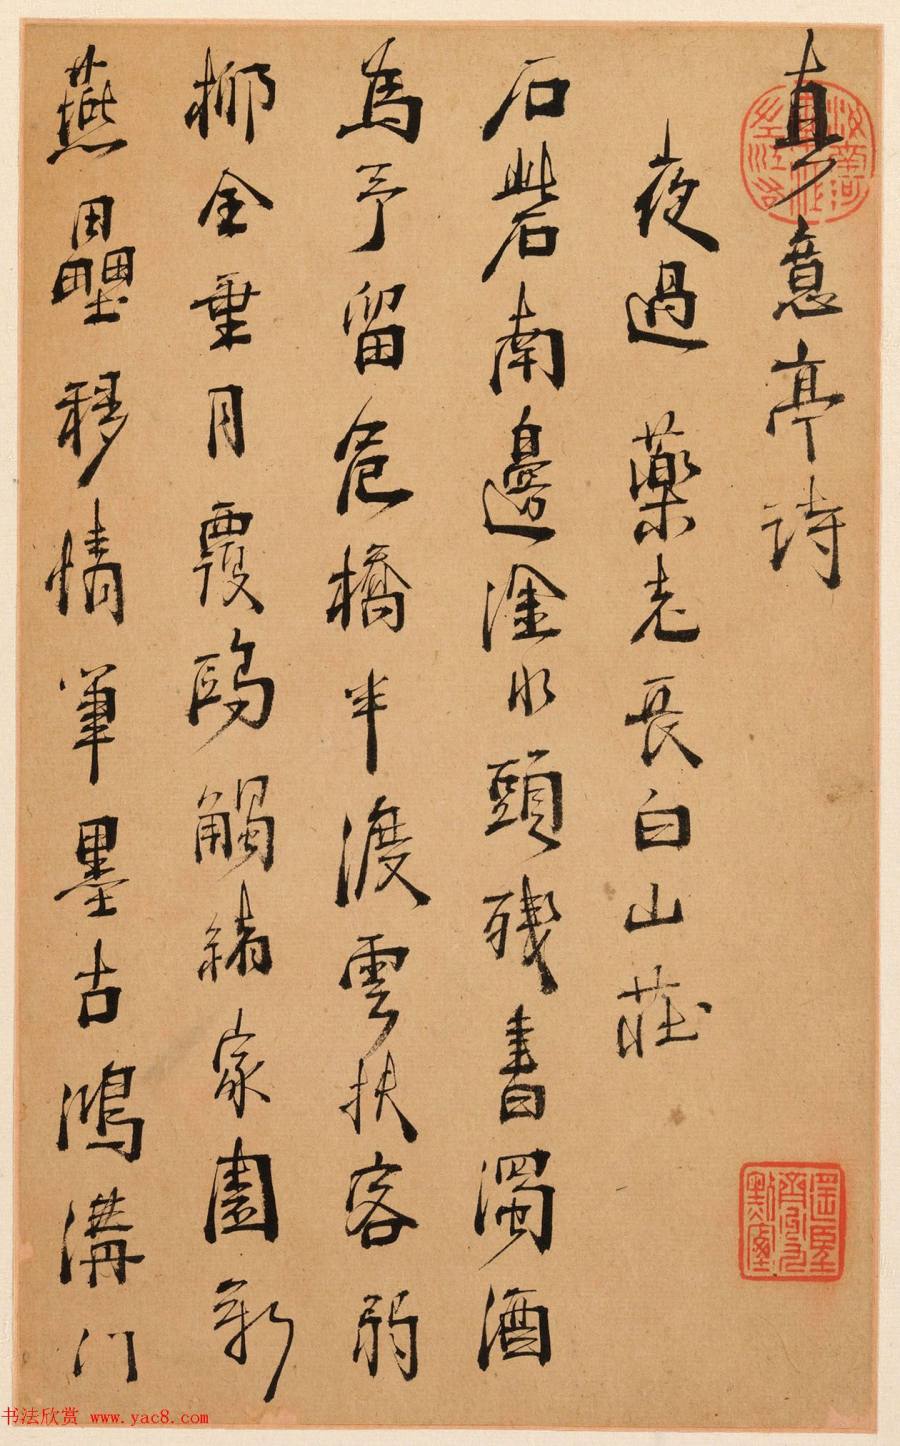 真意亭詩
夜過藥老長白山莊
石砦南邊淦水頭殘書濁酒
為予留危橋半渡雲扶客弱
柳全乗月覆鷗觸緒家園新
燕壘移情筆墨古鴻溝门
书法欣赏 www.yac8.com